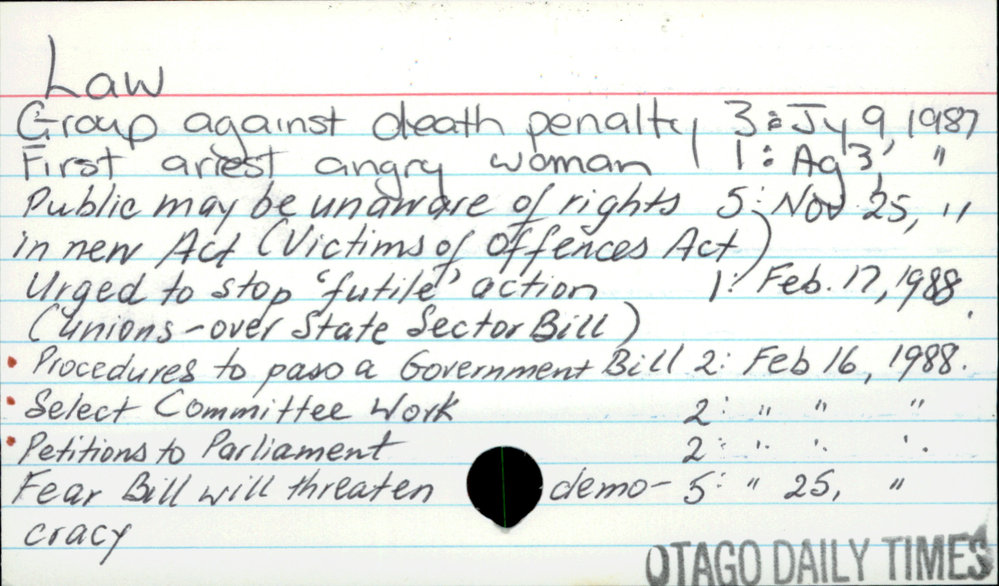 Law
Group against death penalty 3: Jy 9, 1987
First arrest angry woman 1: Ag 3, "
Public may be unaware of rights 5: Nov 25, "
in new Act (Victims of Offences Act)
Urged to stop 'futile' action 1: Feb. 17, 1988.
(unions - over State Sector Bill)
• Procedures to pass a Government Bill 2: Feb 16, 1988.
• Select Committee Work 2: " " "
• Petitions to Parliament 2: " " "
Fear Bill will threaten demo- 5: " 25, "
cracy
OTAGO DAILY TIMES